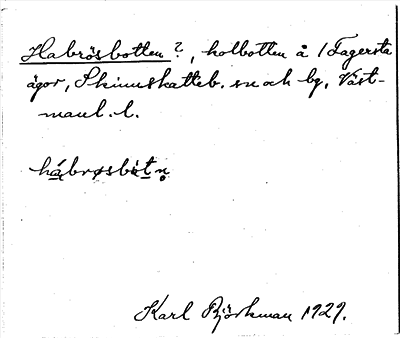 Habrösbotten?, kolbotten å /Fagersta
ägor, Skinnskatteb. sn och bg, Väst-
manl. l.
hábrøsbòtn̥
Karl Björkman 1929.